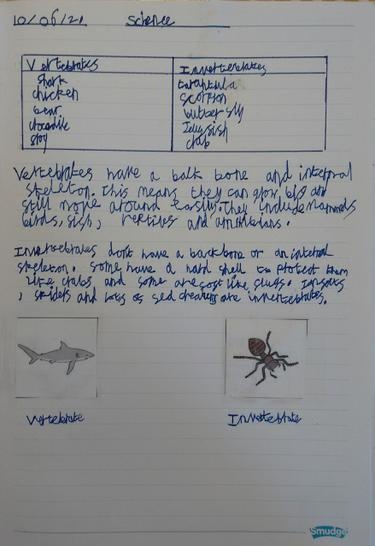 10/06/21 Science
Vertebrates Invertebrates
Shark tarantula
chicken scorpion
bear butterfly
crocodile Jellyfish
crab
Vertebrates have a back bone and internal
skeleton. This means they can grow big and
still move around easily. They include Mammals
birds, fish, reptiles and amphibians.
Invertebrates don't have a backbone or an internal
skeleton. Some have a hard shell to protect them
like crabs and some are soft like slugs. Insects
, spiders and lots of sea creatures are invertebrates.
Vertebrate Invertebrate
Smudge